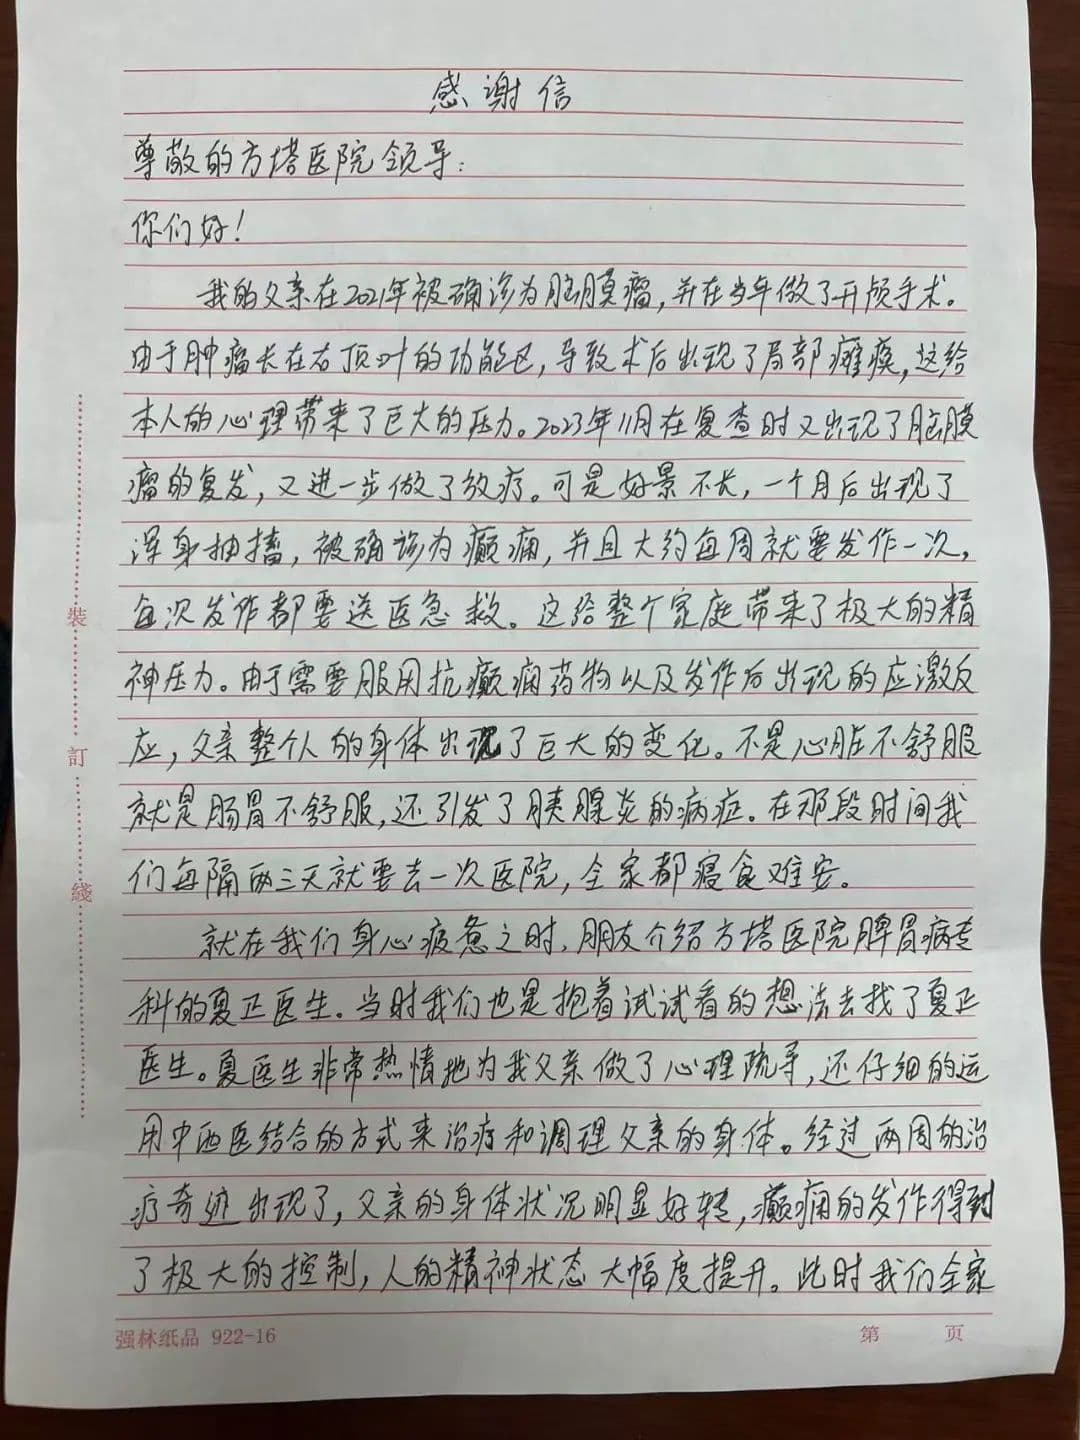 感谢信
尊敬的方塔医院领导:
你们好!
我的父亲在2021年被确诊为脑膜瘤,并在当年做了开颅手术。
由于肿瘤长在右顶叶的功能区,导致术后出现了局部瘫痪,这给
本人的心理带来了巨大的压力。2023年11月在复查时又出现了脑膜
瘤的复发,又进一步做了放疗。可是好景不长,一个月后出现了
浑身抽搐,被确诊为癫痫,并且大约每周就要发作一次,
每次发作都要送医急救。这给整个家庭带来了极大的精
神压力。由于需要服用抗癫痫药物以及发作后出现的应激反
应,父亲整个人的身体出现了巨大的变化。不是心脏不舒服
就是肠胃不舒服,还引发了胰腺炎的病症。在那段时间我
们每隔两三天就要去一次医院,全家都寝食难安。
就在我们身心疲惫之时,朋友介绍方塔医院脾胃病专
科的夏正医生。当时我们也是抱着试试看的想法去找了夏正
医生。夏医生非常热情地为我父亲做了心理疏导,还仔细的运
用中西医结合的方式来治疗和调理父亲的身体。经过两周的治
疗奇迹出现了,父亲的身体状况明显好转,癫痫的发作得到
了极大的控制,人的精神状态大幅度提升。此时我们全家
装
訂
綫
强林纸品 922-16
第 页